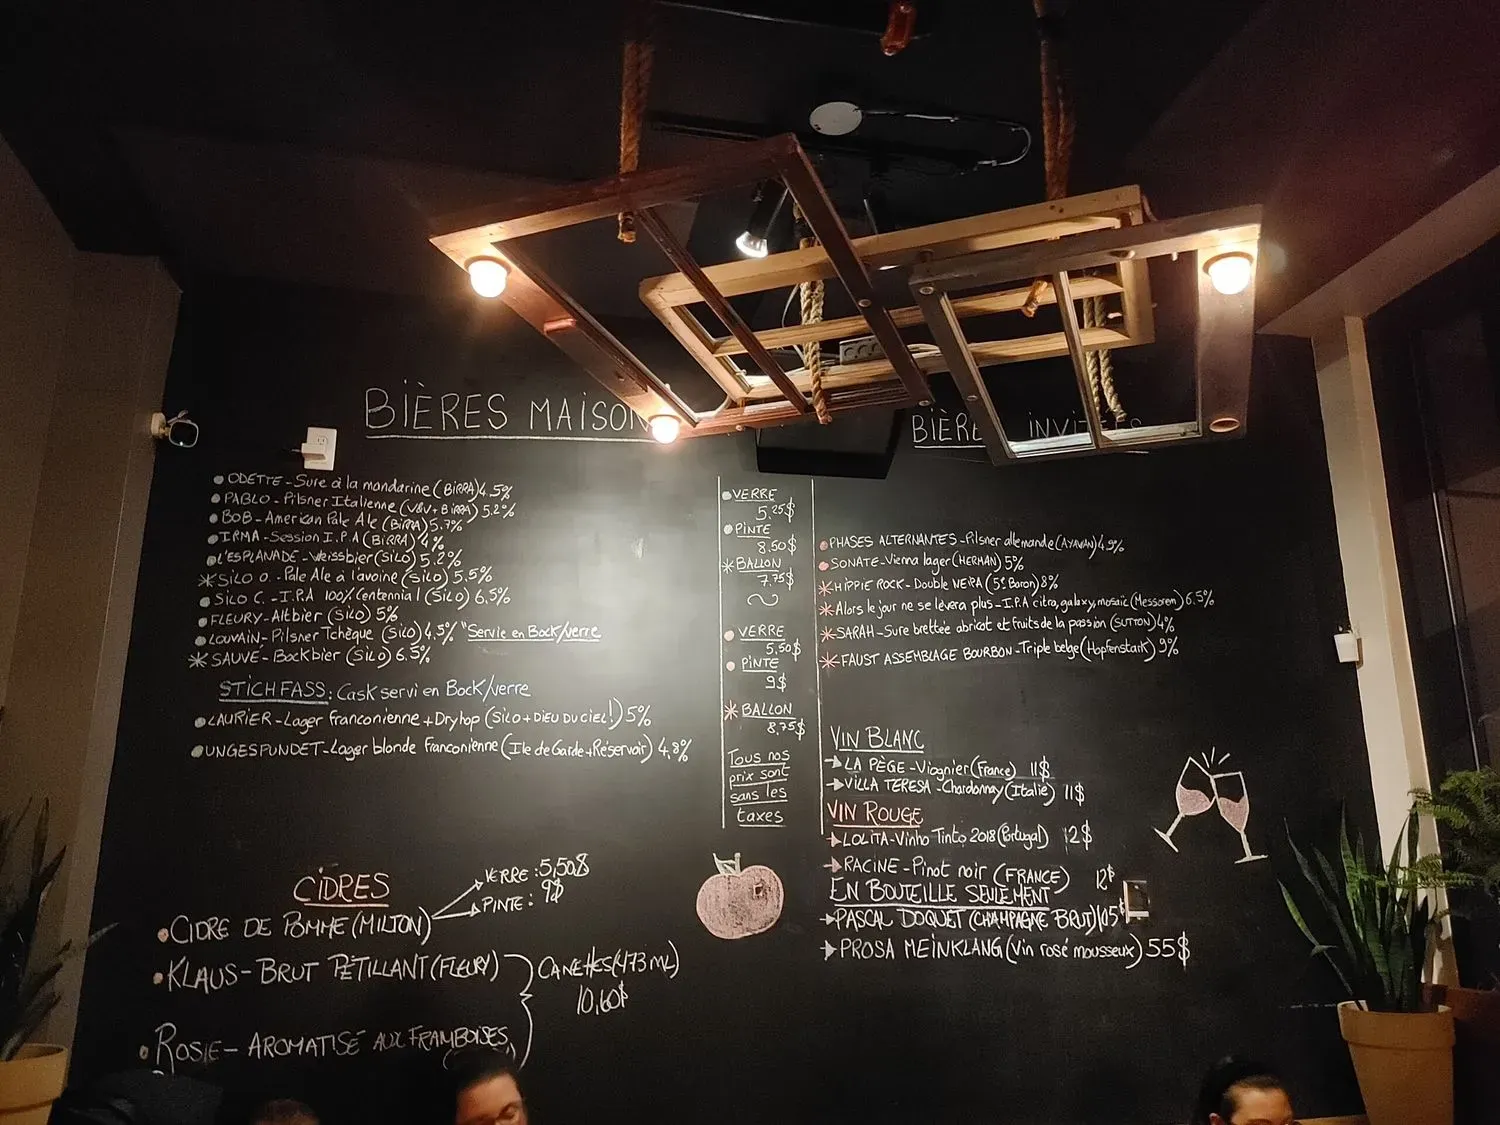 BIÈRES MAISON
ODETTE - Sure à la mandarine (BIRRA) 4.5%
PABLO - Pilsner Italienne (V&V + BIRRA) 5.2%
BOB - American Pale Ale (BIRRA) 5.7%
IRMA - Session I.P.A (BIRRA) 4%
L'ESPLANADE - Weissbier (SILO) 5.2%
SILO O. - Pale Ale à l'avoine (SILO) 5,5%
SILO C. - I.P.A 100% Centennial (SILO) 6,5%
FLEURY - Altbier (SILO) 5%
LOUVAIN - Pilsner Tchèque (SILO) 4,5% "Servie en Bock/verre
SAUVÉ - Bockbier (SILO) 6.5%
STICHFASS : Cask servi en Bock/verre
LAURIER - Lager franconienne + Dryhop (SILO + DIEU DU CIEL!) 5%
UNGESPUNDET - Lager blonde franconienne (Ile de Garde + Réservoir) 4,8%
CIDRES
VERRE : 5,50$
PINTE : 9$
CIDRE DE POMME (MILTON)
KLAUS - BRUT PÉTILLANT (FLEURY)
CANETTES (473 mL)
10,60$
ROSIE - AROMATISÉ AUX FRAMBOISES
VERRE
5.25$
PINTE
8,50$
BALLON
7.75$
VERRE
5,50$
PINTE
9$
BALLON
8,75$
Tous nos
prix sont
sans les
taxes
BIÈRE INVITÉES
PHASES ALTERNANTES - Pilsner allemande (AYAWAN) 4,9%
SONATE - Vienna lager (HERMAN) 5%
HIPPIE ROCK - Double NEIPA (5e Baron) 8%
Alors le jour ne se lèvera plus - I.P.A citra, galaxy, mosaic (Messorem) 6.5%
SARAH - Sure brettée abricot et fruits de la passion (SUTTON) 4%
FAUST ASSEMBLAGE BOURBON - Triple belge (Hopfenstark) 9%
VIN BLANC
LA PÈGE - Viognier (France) 11$
VILLA TERESA - Chardonnay (Italie) 11$
VIN ROUGE
LOLITA - Vinho Tinto 2018 (Portugal) 12$
RACINE - Pinot noir (FRANCE) 12$
EN BOUTEILLE SEULEMENT
PASCAL DOQUET (CHAMPAGNE BRUT) 105$
PROSA MEINKLANG (vin rosé mousseux) 55$